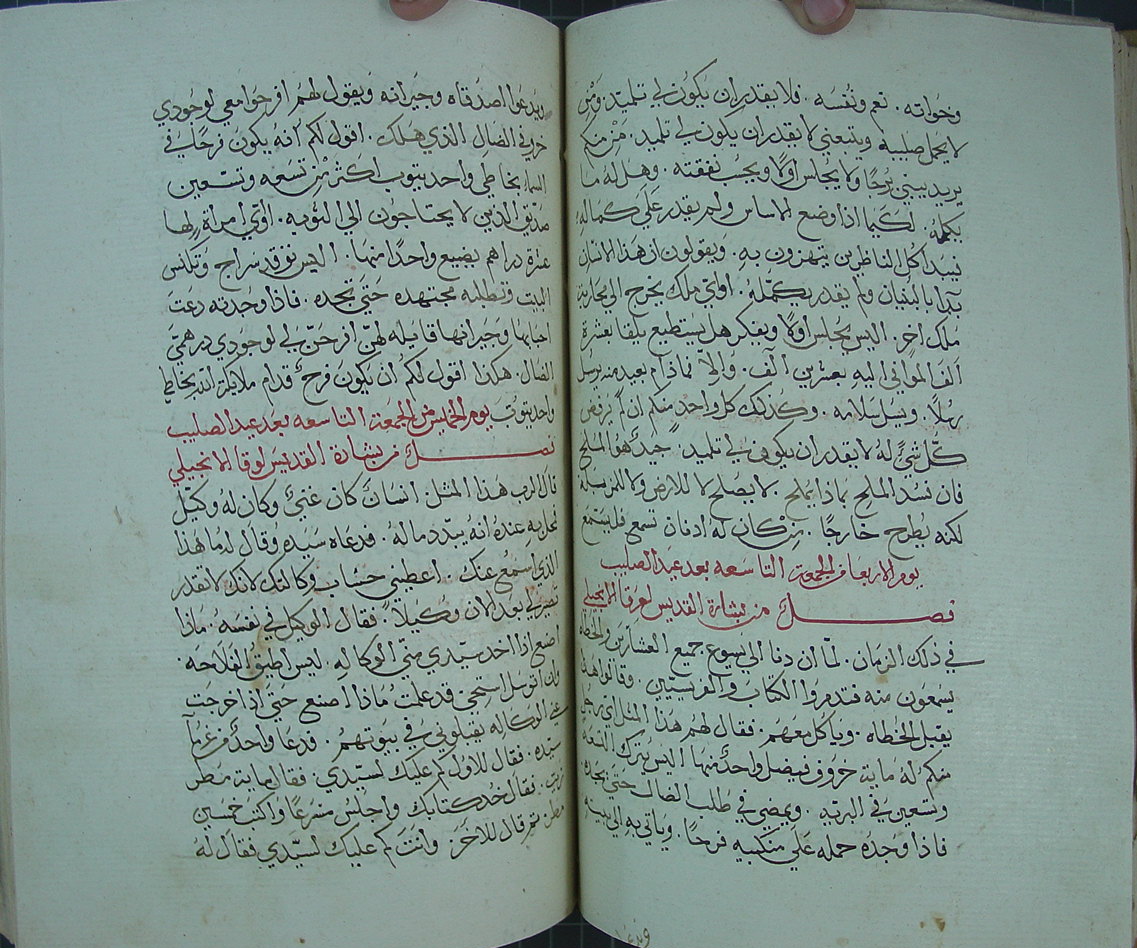 وخواته . نعم ونفسه . فلا يقدر ان يكون لي تلميد . ومن
لا يحمل صليبه ويتبعني لا يقدر ان يكون لي تلميد . من منكم
يريد يبني برجًا ولا يجلس اولًا ويحسب نفقته . وهل له ما
يكمله . لكيما اذا وضع الاساس ولم يقدر على كماله
فيبدا كل الناظرين يتهزون به . ويقولون ان هذا الانسان
بتدا بالبنيان ولم يقدر يكمّله . او اي ملك يخرج الى محاربة
ملك اخر . اليس يجلس اولًا ويفكر هل يستطيع يلقا بعشرة
الف الموافي اليه بعشرين الف . والا فما دام بعيد منه يرسل
رسُلًا . ويسل سلامه . وكذلك كل واحدٍ منكم ان لم يرفض
كل شيءٍ له لا يقدر ان يكون لي تلميد . جيدٌ هو الملح
فان فسد الملح بماذا يملح . لا يصلح لا للارض ولا للمزبله
لكنه يُطرح خارجًا . من كان له ادنان تسمع فليستمع
يوم الاربعا من الجمعة التاسعه بعد عيد الصليب
فصل من بشارة القديس لوقا الانجيلي
في ذلك الزمان . لمّا ان دنا الى يسوع جميع العشارين والخطاه
يسمعون منه فتدمروا الكتاب والفريسيّين . وقالوا هذا
يقبل الخطاه . وياكل معهم . فقال لهم هذا المثل اي رجلٍ
منكم له ماية خروف فيضل واحدٌ منها اليس يترك التسعه
وتسعين في البريه . ويمضي في طلب الضال حتى يجده .
فاذا وجده حمله على منكبيه فرحًا . وياتي به الى بيته
ويدعوا اصدقاه وجيرانه ويقول لهم افرحوا معي لوجودي
خروفي الضال الذي هلك . اقول لكم انه يكون فرحًا في
السما بخاطي واحد يتوب اكثر من تسعه وتسعين
صديق الذين لا يحتاجون الى التوبه . او اي امراةٍ لها
عشرة دراهم يضيع واحدًا منها . اليس توقد سراج وتكنس
البيت وتطلبه مجتهده حتى تجده . فاذا وجدته دعت
احبابها وجيرانها قايله لهنّ افرحنّ لي لوجودي درهمي
الضال . هكذا اقول لكم ان يكون فرحٌ قدام ملايكة الله بخاطي
واحد يتوب يوم الخميس من الجمعة التاسعه بعد عيد الصليب
فصل من بشارة القديس لوقا الانجيلي
قال الرب هذا المثل . انسانٌ كان غنيٌ وكان له وكيل
فمحل به عنده انه يبدد ماله . فدعاه سيده وقال له ما هذا
الذي اسمع عنك . اعطيني حساب وكالتك لانك لا تقدر
تصير لي بعد الان وكيلًا . فقال الوكيل في نفسه . ماذا
اصنع اذا اخد سيّدي منّي الوكاله . ليس اطيق الفلاحه .
وان اتوسل استحي . قد علمت ماذا اصنع حتى اذا خرجت
عن الوكاله يقبلوني في بيوتهم . فدعا واحدٌ من غرمآ
سيّده . فقال للاول كم عليك لسيّدي . فقال ماية مطر
زيت . فقال خد كتابك واجلس مسرعًا واكتب خمسين
مطر . ثم قال للاخر . وانت كم عليك لسيّدي فقال له